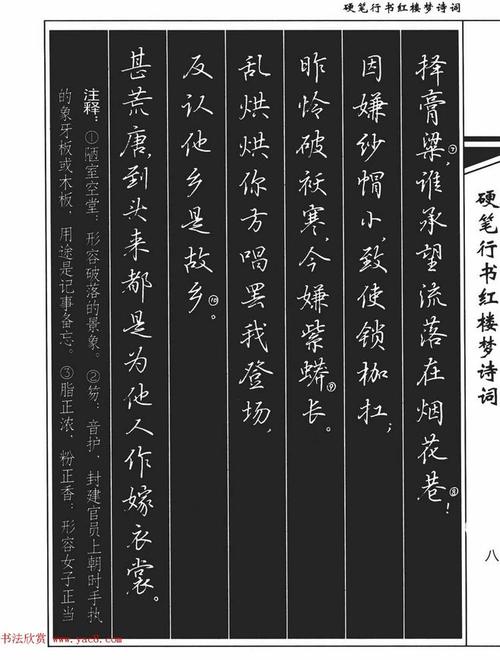 硬笔行书红楼梦诗词
择膏粱,⑦谁承望流落在烟花巷!⑧
因嫌纱帽小,致使锁枷扛;
昨怜破袄寒,今嫌紫蟒⑨长。
乱烘烘你方唱罢我登场,
反认他乡是故乡。⑩
甚荒唐,到头来都是为他人作嫁衣裳。
注释:①陋室空堂:形容破落的景象。②笏:音护,封建官员上朝时手执
的象牙板或木板,用途是记事备忘。③脂正浓、粉正香:形容女子正当
硬笔行书红楼梦诗词
八
书法欣赏 www.yac8.com